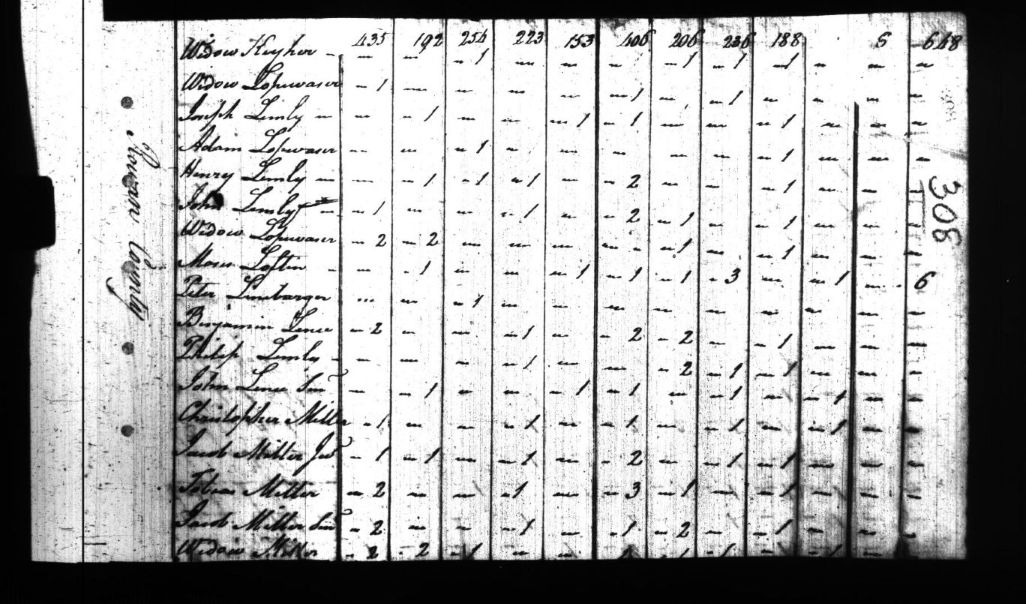 435 192 254 223 153 406 206 236 188 5 668
Widow Keyher - - - - 1 - - - - 1 - 1 - 1 - - -
Widow Lopewaser - 1 - - - - - 1 - - 1 - - - -
Joseph Limly - - - 1 - - - 1 - 1 - - - 1 - - -
Adam Lopewaser - - - 1 - - - - - - 1 - - -
Henry Limly - - - 1 - 1 - 1 - - 2 - - - 1 - - -
John Limly - 1 - - - 1 - - 2 - 1 - - 1 - - -
Widow Lopewaser - 2 - 2 - - - - - 1 - - 1 - - -
Moses Loftin - - - 1 - - - 1 - 1 - 1 - 3 - - 1 - - 6
Peter Linebarger - - - 1 - - - - - - - - -
Benjamin Lence - 2 - - - 1 - - 2 - 2 - - 1 - - -
Philip Limly - - - - - 1 - - - 2 - 1 - 1 - - -
John Lence Senr - - - 1 - - - 1 - 1 - - 1 - - 1 - -
Christopher Miller - 1 - - - 1 - - 1 - - 1 - - 1 - -
Jacob Miller Jur - 1 - 1 - - 1 - - 2 - - 1 - 1 - - -
Tobias Miller - 2 - - - 1 - - 3 - 1 - - 1 - - -
Jacob Miller Senr - 2 - - - 1 - - 1 - 2 - - 1 - - -
Widow Miller - 2 - 2 - 1
Rowan County
308